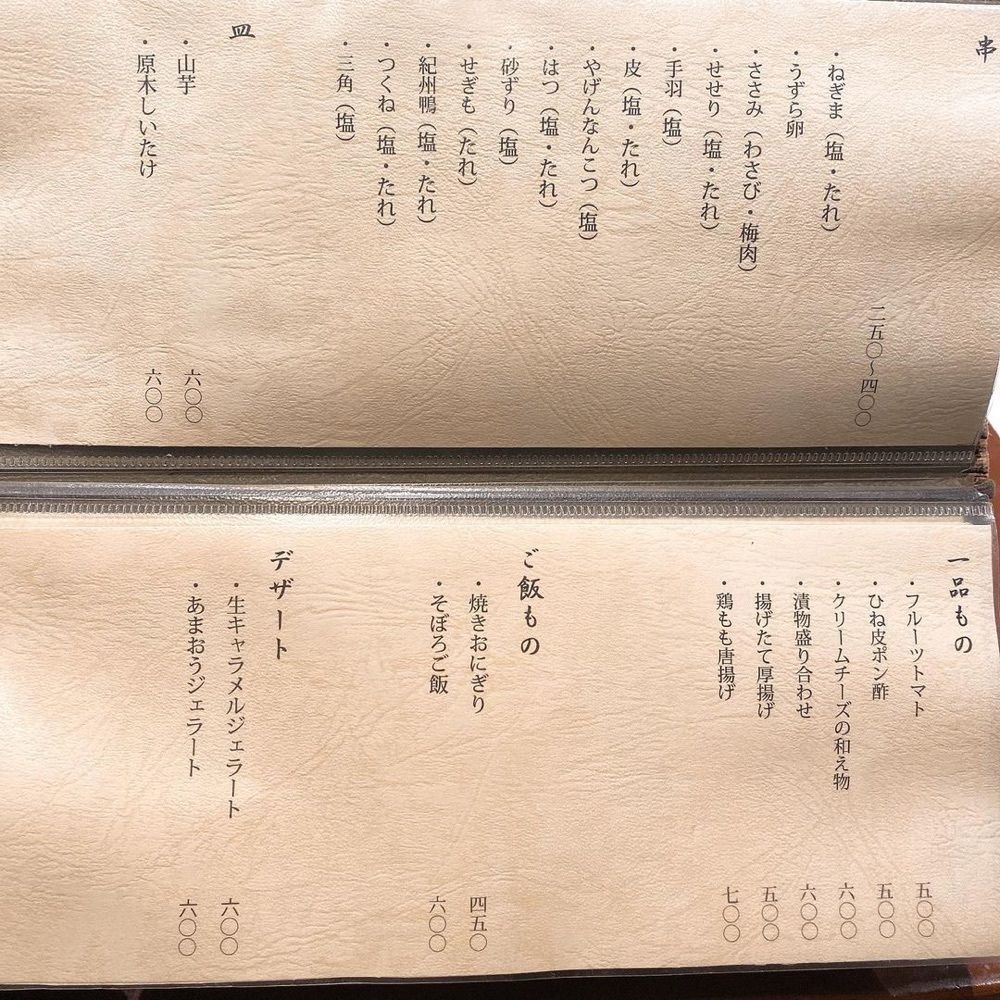 串
・ねぎま（塩・たれ）
・うずら卵
・ささみ（わさび・梅肉）
・せせり（塩・たれ）
・手羽（塩）
・皮（塩・たれ）
・やげんなんこつ（塩）
・はつ（塩・たれ）
・砂ずり（塩）
・せぎも（たれ）
・紀州鴨（塩・たれ）
・つくね（塩・たれ）
・三角（塩）
二五〇〜四〇〇
皿
・山芋 六〇〇
・原木しいたけ 六〇〇
一品もの
・フルーツトマト 五〇〇
・ひね皮ポン酢 五〇〇
・クリームチーズの和え物 六〇〇
・漬物盛り合わせ 六〇〇
・揚げたて厚揚げ 五〇〇
・鶏もも唐揚げ 七〇〇
ご飯もの
・焼きおにぎり 四五〇
・そぼろご飯 六〇〇
デザート
・生キャラメルジェラート 六〇〇
・あまおうジェラート 六〇〇